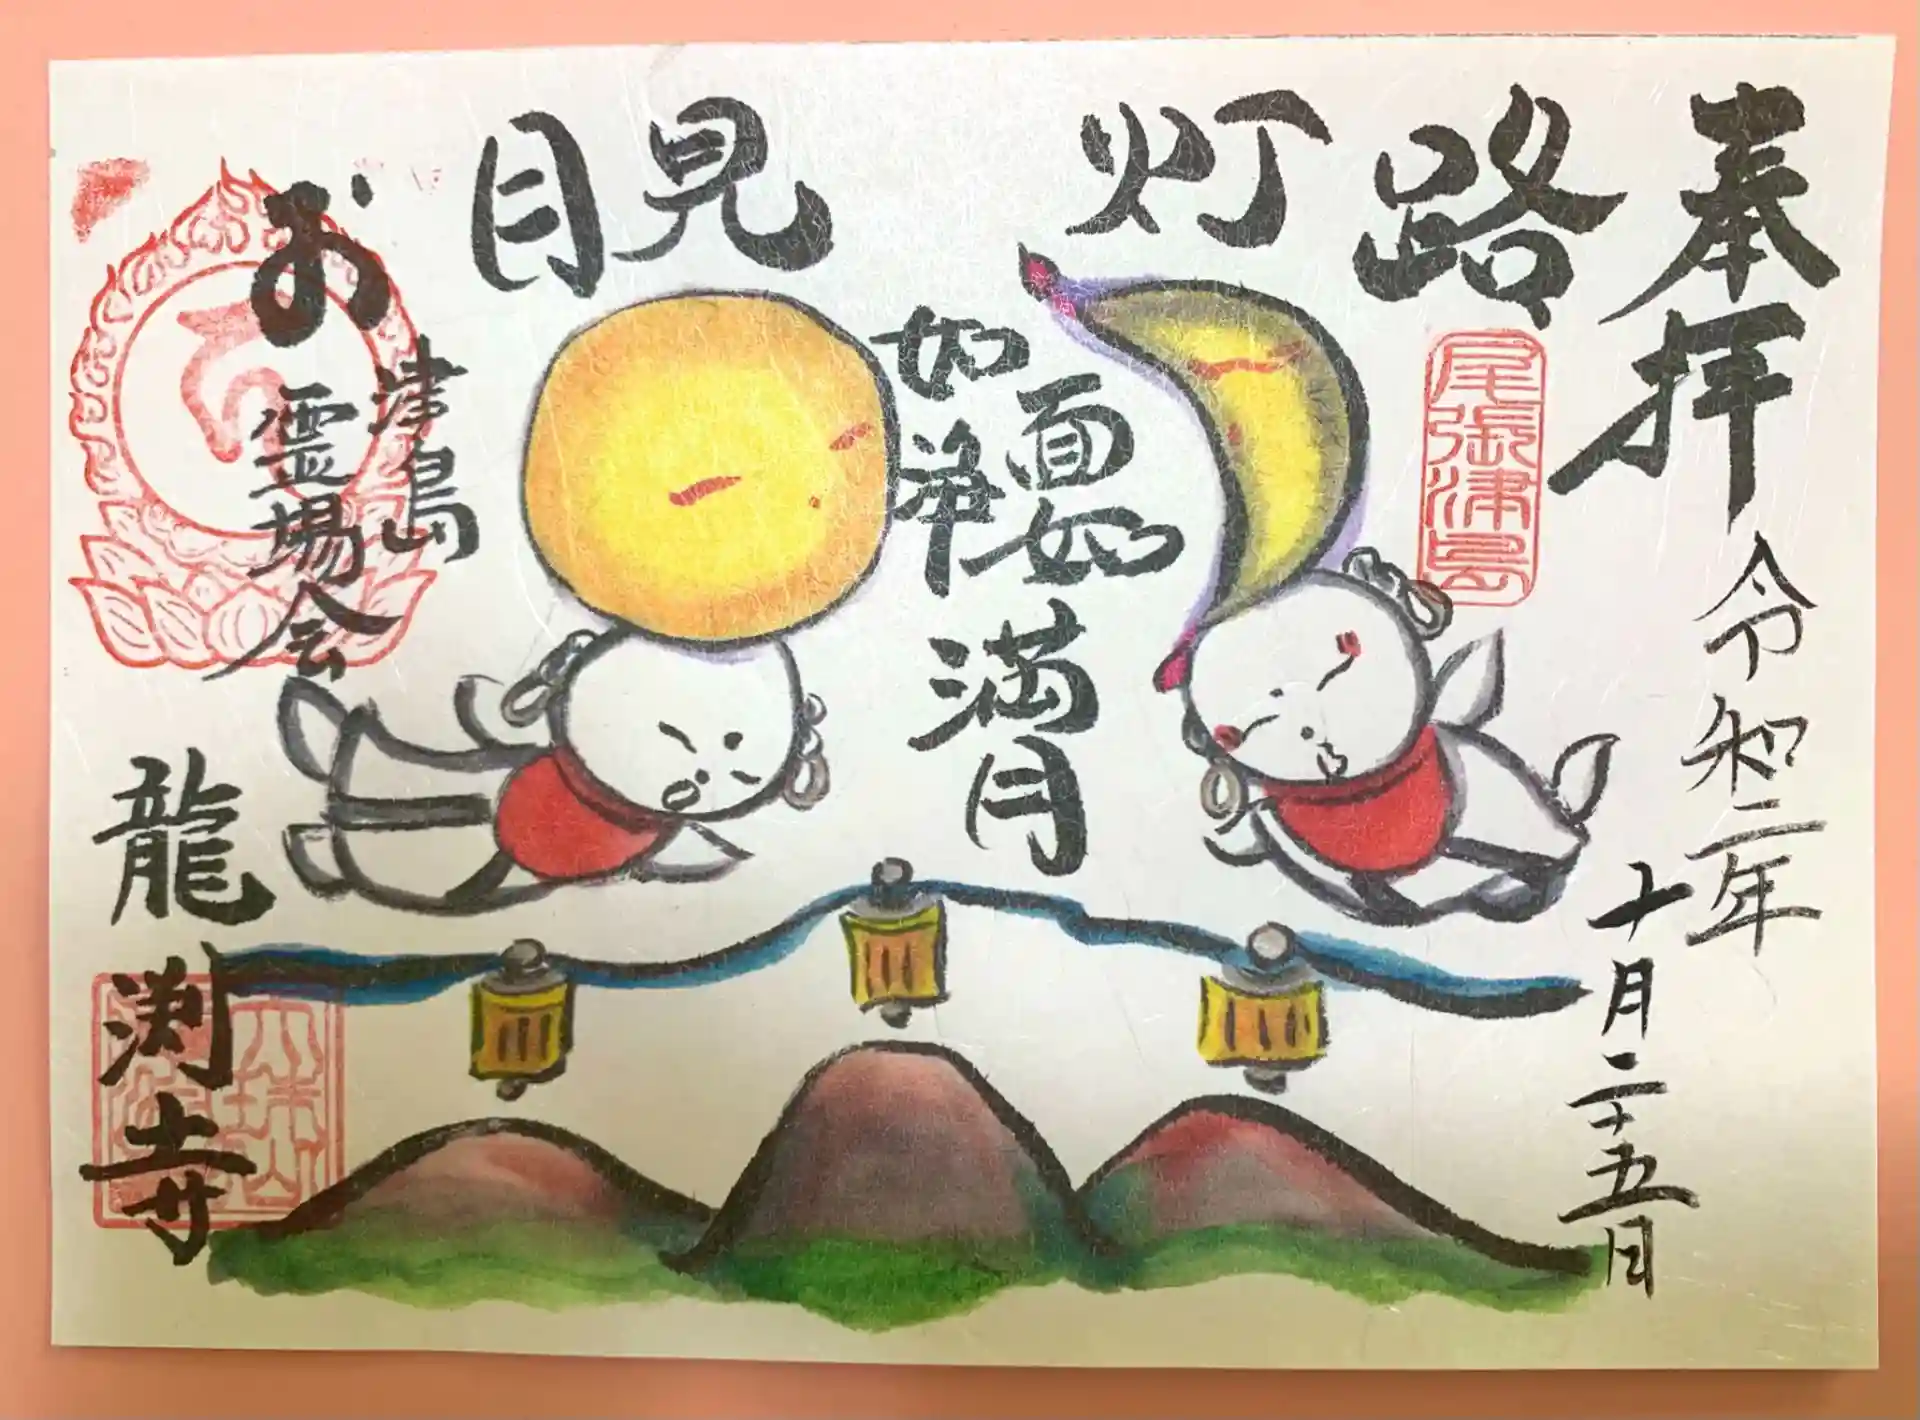 奉拝
令和二年
十月二十五日
尾張津島
お月見 灯路
面如
如
満月
津島
霊場会
龍渕寺